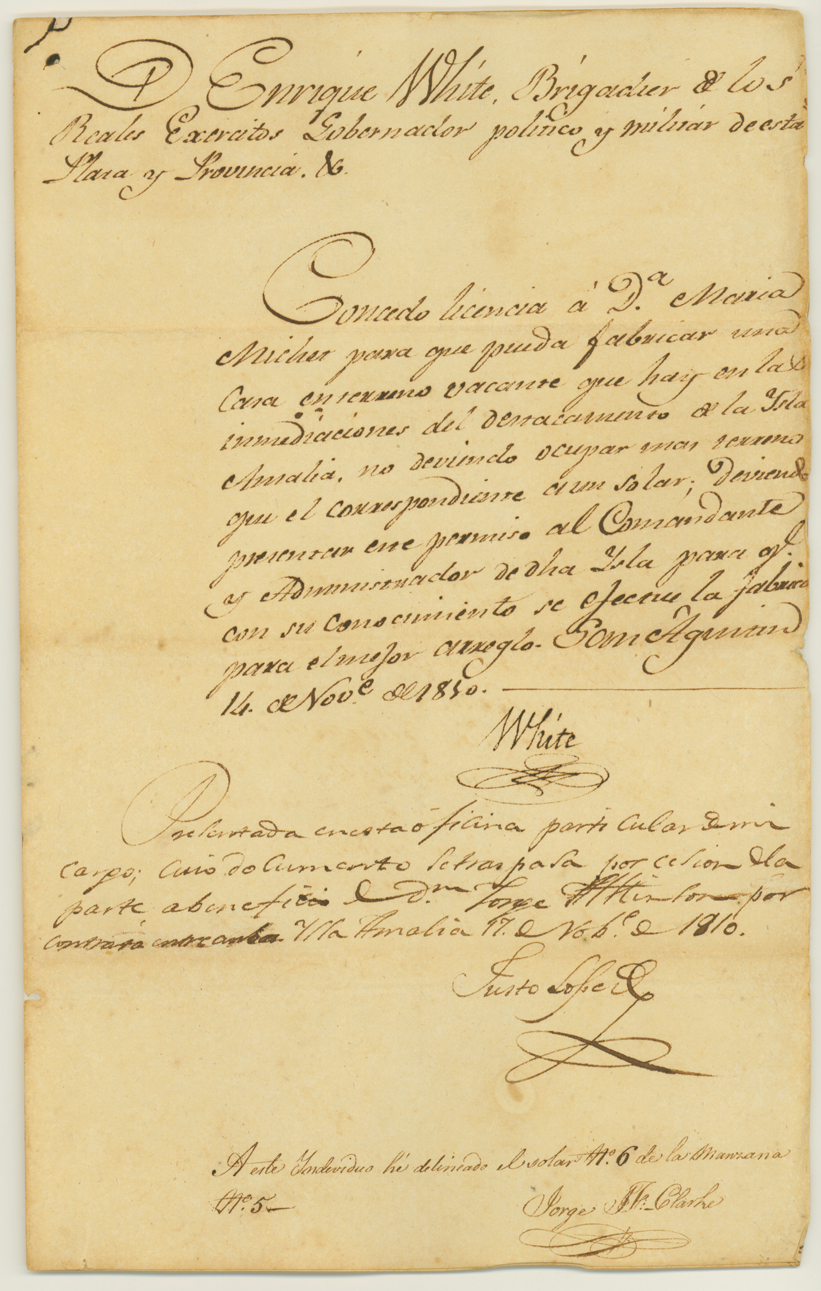 Dn Enrique White, Brigadier de los
Reales Exercitos Gobernador politico y militar de esta
Plaza y Provincia. &c.
Concedo licencia á Da. Maria
para que pueda fabricar una
Casa en terreno vacante que hay en las
inmediaciones del destacamento de la Ysla
Amalia, no deviendo ocupar mas terreno
que el correspondiente a un solar; deviendo
presentar este permiso al Comandante
y Administrador de dha Ysla para qe.
con su conocimiento se efectue la fabrica
para el mejor arreglo. San Agustin
14. de Nove. de 1810.
White
Presentada en esta oficina particular de mi
cargo; cuio documento se traspasa por cesion de la
parte a beneficio de Dn. Jorge por
Ysla Amalia 17. de Nobe. de 1810.
Justo Lopez
A este Yndividuo hé delineado el solar No. 6 de la Manzana
No. 5
Jorge J. F. Clarke